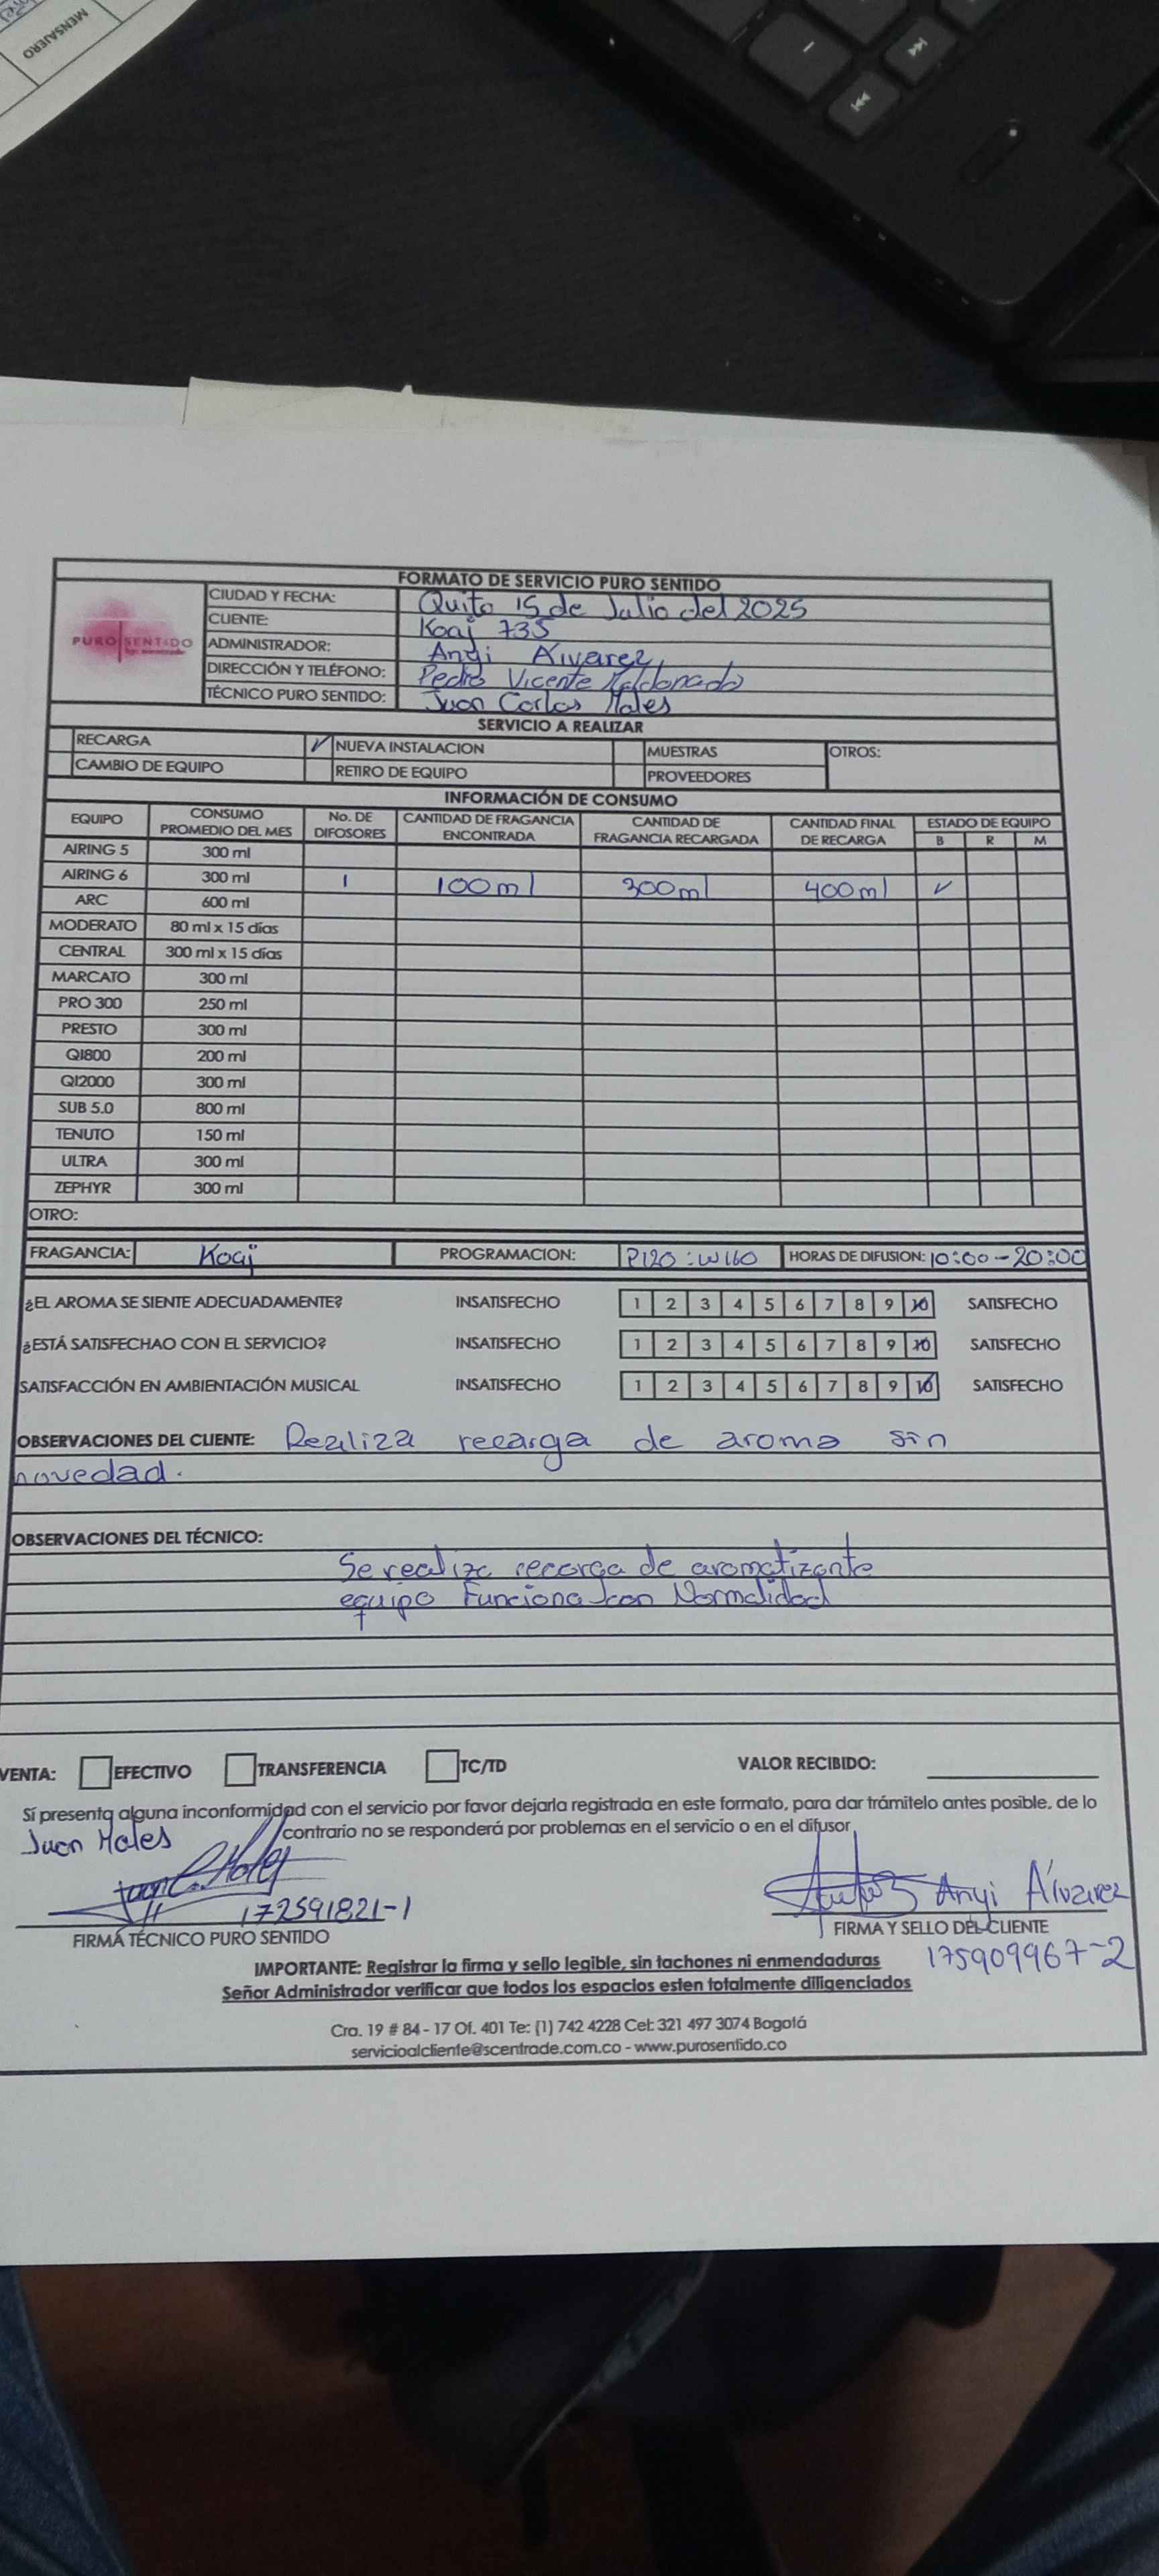 MENSAJERO
FORMATO DE SERVICIO PURO SENTIDO
PURO SENTIDO
CIUDAD Y FECHA: Quito 15 de Julio del 2025
CLIENTE: Koaj 735
ADMINISTRADOR: Angi Álvarez
DIRECCIÓN Y TELÉFONO: Pedro Vicente Maldonado
TÉCNICO PURO SENTIDO: Juan Carlos Males
SERVICIO A REALIZAR
RECARGA ✓ NUEVA INSTALACION MUESTRAS OTROS:
CAMBIO DE EQUIPO RETIRO DE EQUIPO PROVEEDORES
INFORMACIÓN DE CONSUMO
EQUIPO CONSUMO PROMEDIO DEL MES No. DE DIFOSORES CANTIDAD DE FRAGANCIA ENCONTRADA CANTIDAD DE FRAGANCIA RECARGADA CANTIDAD FINAL DE RECARGA ESTADO DE EQUIPO B R M
AIRING 5 300 ml
AIRING 6 300 ml 1 100ml 300ml 400ml ✓
ARC 600 ml
MODERATO 80 ml x 15 días
CENTRAL 300 ml x 15 días
MARCATO 300 ml
PRO 300 250 ml
PRESTO 300 ml
QI800 200 ml
QI2000 300 ml
SUB 5.0 800 ml
TENUTO 150 ml
ULTRA 300 ml
ZEPHYR 300 ml
OTRO:
FRAGANCIA: Koaj PROGRAMACION: P120 : W160 HORAS DE DIFUSION: 10:00 - 20:00
¿EL AROMA SE SIENTE ADECUADAMENTE? INSATISFECHO 1 2 3 4 5 6 7 8 9 10 SATISFECHO
¿ESTÁ SATISFECHAO CON EL SERVICIO? INSATISFECHO 1 2 3 4 5 6 7 8 9 10 SATISFECHO
SATISFACCIÓN EN AMBIENTACIÓN MUSICAL INSATISFECHO 1 2 3 4 5 6 7 8 9 10 SATISFECHO
OBSERVACIONES DEL CLIENTE: Realiza recarga de aroma sin
novedad.
OBSERVACIONES DEL TÉCNICO:
Se realiza recarga de aromatizante
equipo Funciona con Normalidad
VENTA: EFECTIVO TRANSFERENCIA TC/TD VALOR RECIBIDO:
Sí presenta alguna inconformidad con el servicio por favor dejarla registrada en este formato, para dar trámitelo antes posible, de lo
contrario no se responderá por problemas en el servicio o en el difusor
Juan Males
172591821-1
Anyi Álvarez
FIRMA TÉCNICO PURO SENTIDO FIRMA Y SELLO DEL CLIENTE
175909967-2
IMPORTANTE: Registrar la firma y sello legible, sin tachones ni enmendaduras
Señor Administrador verificar que todos los espacios esten totalmente diligenciados
Cra. 19 # 84 - 17 Of. 401 Te: (1) 742 4228 Cel: 321 497 3074 Bogotá
servicioalcliente@scentrade.com.co - www.purosentido.co